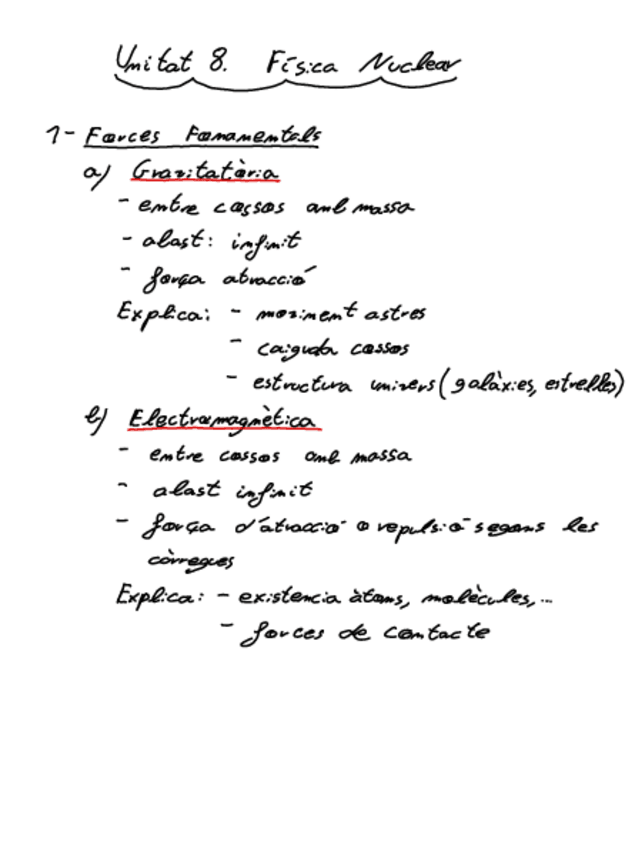 Unitat 8. Física Nuclear
1- Forces Fonamentals
a) Gravitatòria
- entre cossos amb massa
- abast: infinit
- força atracció
Explica: - moviment astres
- caiguda cossos
- estructura univers (galàxies, estrelles)
b) Electromagnètica
- entre cossos amb massa
- abast infinit
- força d'atracció o repulsió segons les
càrregues
Explica: - existencia àtoms, molècules,...
- forces de contacte